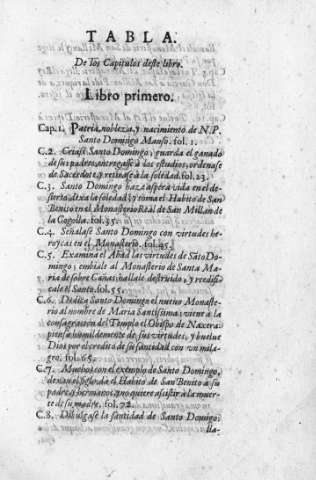 TABLA.
De los Capitulos deste libro.
Libro primero.
Cap. 1. Patria, nobleza, y nacimiento de N. P.
Santo Domingo Manso. fol. 1.
C. 2. Criase Santo Domingo, guarda el ganado
de su padre, entregase à los estudios, ordenase
de Sacerdote, y retirase à la soledad. fol. 23.
C. 3. Santo Domingo haze aspera vida en el de-
sierto, dexa la soledad, y toma el Habito de San
Benito en el Monasterio Real de San Millan de
la Cogolla. fol. 35.
C. 4. Señalase Santo Domingo con virtudes he-
roycas en el Monasterio. fol. 45.
C. 5. Examina el Abad las virtudes de Sãto Do-
mingo; embiale al Monasterio de Santa Ma-
ria de sobre Cañas, hallale destruido, y reedifi-
cale el Santo. fol. 55.
C. 6. Dedica Santo Domingo el nuevo Monaste-
rio al nombre de Maria Santissima: viene à la
consagracion del Templo el Obispo de Naxera:
piensa humildemente de sus virtudes, y buelve
Dios por el credito de su santidad con un mila-
gro. fol. 65.
C. 7. Muchos con el exemplo de Santo Domingo,
dexan el siglo, da el Habito de San Benito à su
padre, y hermanos, no quiere assistir à la muer-
te de su madre. fol. 72.
C. 8. Dibulgase la santidad de Santo Domigo,
lla-